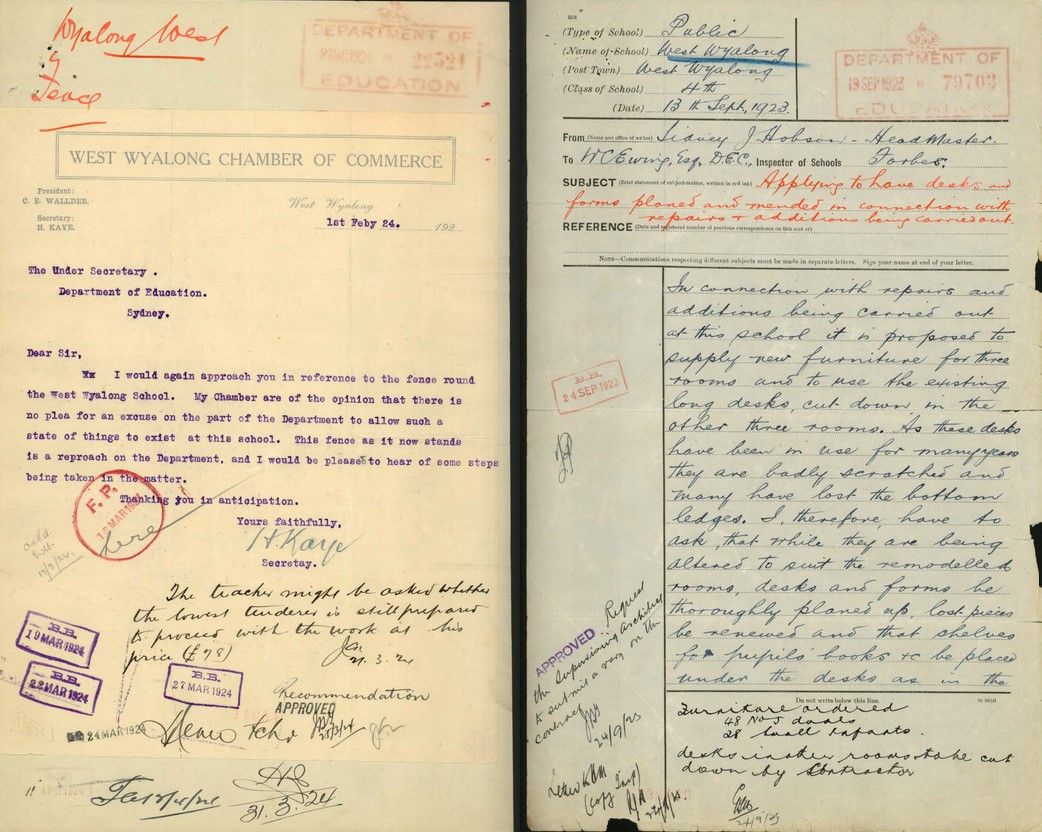 Wyalong West
Fence
DEPARTMENT OF
22521
EDUCATION
WEST WYALONG CHAMBER OF COMMERCE
President:
C. B. WALLDER.
Secretary:
H. KAYE.
West Wyalong
1st Feby 24. 192
The Under Secretary .
Department of Education.
Sydney.
Dear Sir,
xx I would again approach you in reference to the fence round
the West Wyalong School. My Chamber are of the opinion that there is
no plea for an excuse on the part of the Department to allow such a
state of things to exist at this school. This fence as it now stands
is a reproach on the Department, and I would be please to hear of some steps
being taken in the matter.
Thanking you in anticipation.
Yours faithfully,
H. Kaye
Secretay.
F. P.
MAR 1924
The teacher might be asked whether
the lowest tenderer is still prepared
to proceed with the work at his
price (£78)
21.3.24
B.B.
19 MAR 1924
B.B.
22 MAR 1924
B.B.
27 MAR 1924
Recommendation
APPROVED
24 MAR 1924
31.3.24
(Type of School) Public
(Name of School) West Wyalong
(Post Town) West Wyalong
(Class of School) 4th
(Date) 13th Sept, 1923
DEPARTMENT OF
19 SEP 1923 79703
EDUCATION
From (Name and office of writer) Sidney J Hobson - Head Master.
To W C Ewing, Esq, D.E.C., Inspector of Schools Forbes.
SUBJECT (Brief statement of subject-matter, written in red ink) Applying to have desks and
forms planed and mended in connection with
repairs & additions being carried out.
REFERENCE (Date and registered number of previous correspondence on this unit or)
NOTE—Communications respecting different subjects must be made in separate letters. Sign your name at end of your letter.
In connection with repairs and
additions being carried out
at this school it is proposed to
supply new furniture for three
rooms and to use the existing
long desks, cut down in the
other three rooms. As these desks
have been in use for many years
they are badly scratched and
many have lost the bottom
ledges. I, therefore, have to
ask, that while they are being
altered to suit the remodelled
rooms, desks and forms be
thoroughly planed up, lost pieces
be renewed and that shelves
for pupils' books &c be placed
under the desks as in the
B.B.
24 SEP 1923
APPROVED Request
the Supervising Architect
to submit a vary on the
contract
24/9/23
Do not write below this line.
Furniture ordered
48 No 5 duals
28 small Infants.
desks in other rooms to be cut
down by Contractor
24/9/23